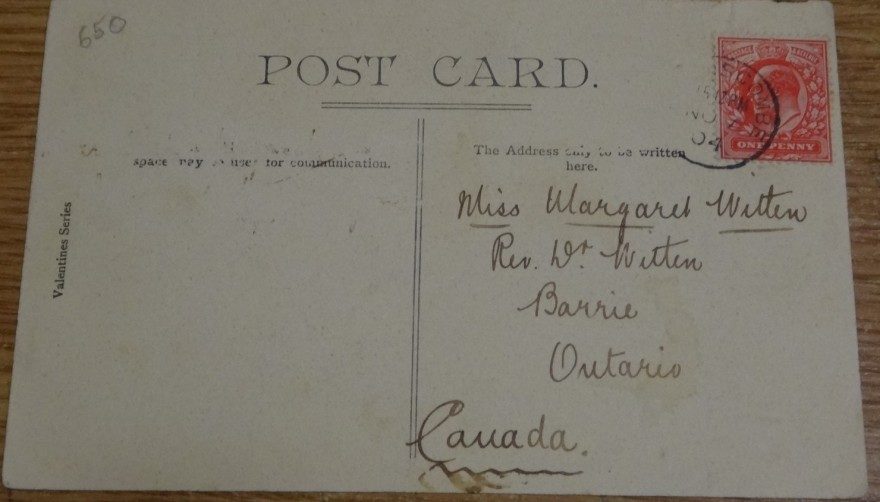 650
POST CARD.
space may use for communication.
The Address only to be written
here.
Valentines Series
ONE PENNY
NO
04
Miss Margaret Witten
Rev. Dr. Witten
Barrie
Ontario
Canada.